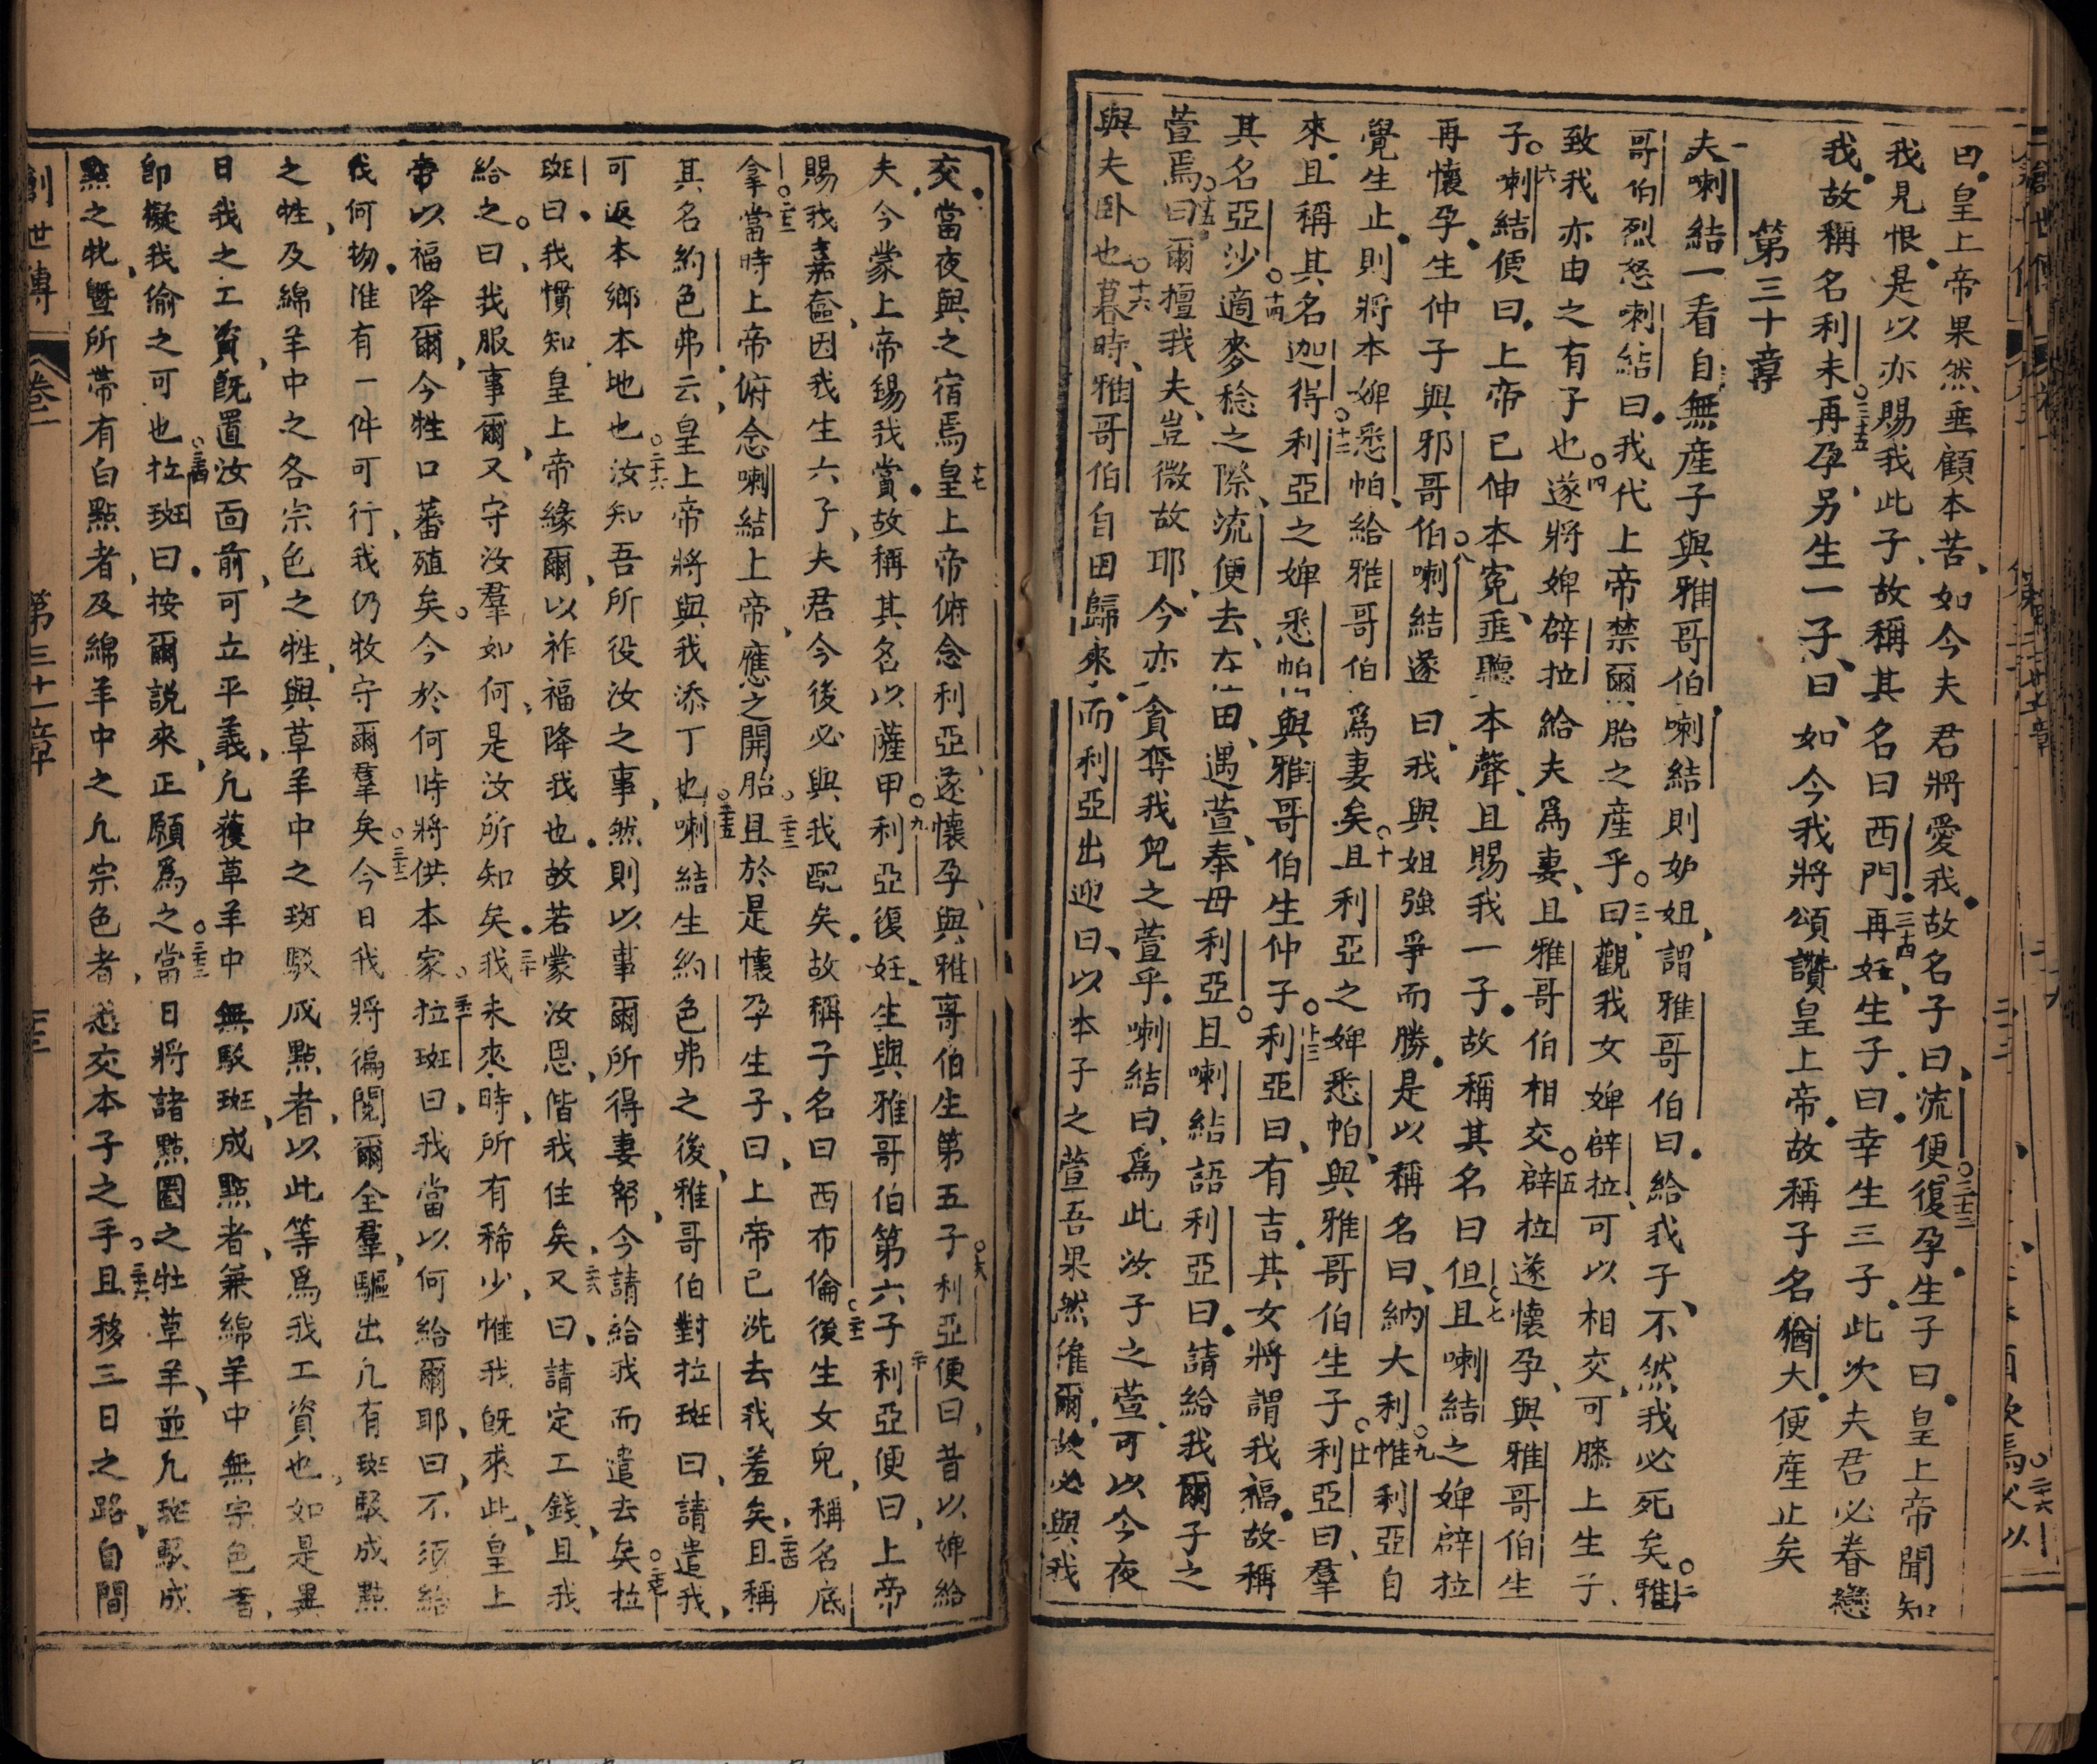 曰皇上帝果然垂顧本苦如今夫君將愛我故名子曰流便○三十三復孕生子曰皇上帝聞知
我見恨是以亦賜我此子故稱其名曰西門三十四再妊生子曰幸生三子此次夫君必眷戀
我故稱名利未○三十五再孕另生一子曰如今我將頌讚皇上帝故稱子名猶大便產止矣
第三十章
一夫喇結一看自無產子與雅哥伯喇結則妒姐謂雅哥伯曰給我子不然我必死矣○二雅
哥伯烈怒喇結曰我代上帝禁爾胎之產乎○三曰觀我女婢辟拉可以相交可膝上生子
致我亦由之有子也○四遂將婢辟拉給夫爲妻且雅哥伯相交○五辟拉遂懷孕與雅哥伯生
子○六喇結便曰上帝已伸本冤垂聽本聲且賜我一子故稱其名曰但○七且喇結之婢辟拉
再懷孕生仲子與邪哥伯○八喇結遂曰我與姐強爭而勝是以稱名曰納大利○九惟利亞自
覺生止則將本婢悉帕給雅哥伯爲妻矣○十且利亞之婢悉帕與雅哥伯生子○十一利亞曰羣
來且稱其名迦得○十二利亞之婢悉帕與雅哥伯生仲子○十三利亞曰有吉其女將謂我福故稱
其名亞沙○十四適麥稔之際流便去在田遇萱奉母利亞○且喇結語利亞曰請給我爾子之
萱焉○十五曰爾擅我夫豈微故耶今亦貪奪我兒之萱乎喇結曰爲此汝子之萱可以今夜
與夫卧也○十六暮時雅哥伯自田歸來而利亞出迎曰以本子之萱吾果然僱爾故必與我
交當夜與之宿焉十七皇上帝俯念利亞遂懷孕與雅哥伯生第五子○十八利亞便曰昔以婢給
夫今蒙上帝錫我賞故稱其名以薩甲○十九利亞復妊生與雅哥伯第六子二十利亞便曰上帝
賜我嘉奩因我生六子夫君今後必與我配矣故稱子名曰西布倫○二十一後生女兒稱名底
拿○二十二當時上帝俯念喇結上帝應之開胎○二十三且於是懷孕生子曰上帝已洗去我羞矣二十四且稱
其名約色弗云皇上帝將與我添丁也○二十五喇結生約色弗之後雅哥伯對拉班曰請遣我
可返本鄉本地也○二十六汝知吾所役汝之事然則以事爾所得妻帑今請給我而遣去矣○二十七拉
班曰我慣知皇上帝緣爾以祚福降我也故若蒙汝恩偕我住矣二十八又曰請定工錢且我
給之○曰我服事爾又守汝羣如何是汝所知矣三十我未來時所有稀少惟我旣來此皇上
帝以福降爾今牲口蕃殖矣今於何時將供本家○三十一拉班曰我當以何給爾耶曰不須給
我何物准有一件可行我仍牧守爾羣矣○三十二今日我將徧閱爾全羣驅出凡有斑駁成點
之牲及綿羊中之各宗色之牲與草羊中之斑駁成點者以此等爲我工資也如是異
日我之工資旣置汝面前可立平義凡獲草羊中無駁斑成點者兼綿羊中無宗色者
卽擬我偷之可也○三十四拉班曰按爾說來正願爲之○三十五當日將諸點圈之牡草羊並凡斑駁成
點之牝曁所帶有白點者及綿羊中之凡宗色者悉交本子之手○三十六且移三日之路自間
創世傳　卷一　第三十章